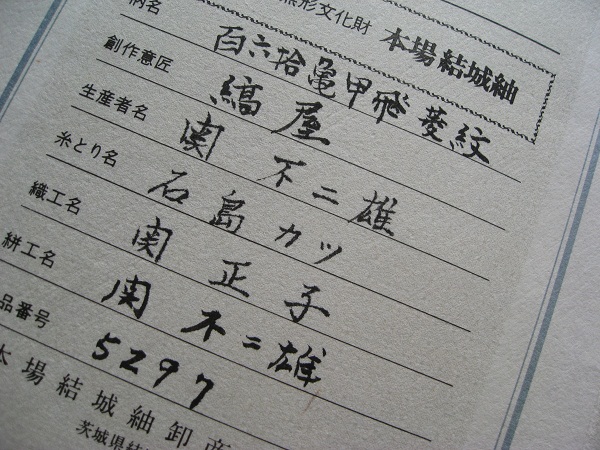 無形文化財 本場結城紬
柄名 百六拾亀甲飛菱紋
創作意匠 縞屋
生産者名 関 不二雄
糸とり名 石島カツ
織工名 関 正子
絣工名 関 不二雄
品番号 5297
本場結城紬卸商
茨城県結